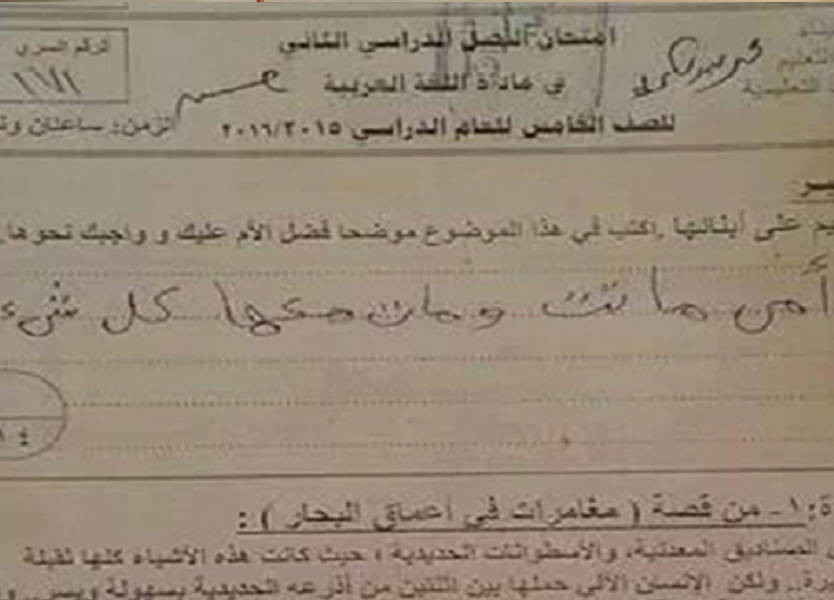 امتحان الفصل الدراسي الثاني
في مادة اللغة العربية
للصف الخامس للعام الدراسي ٢٠١٦/٢٠١٥
الرقم السري
١١٧١
الزمن: ساعتان
على أبنائها .اكتب في هذا الموضوع موضحا فضل الأم عليك و واجبك نحوها.
أمي ماتت ومات معها كل شيء
١- من قصة ( مغامرات في أعماق البحار ) :
الصناديق المعدنية، والأسطوانات الحديدية ؛ حيث كانت هذه الأشياء كلها ثقيلة
ولكن الإنسان الآلي حملها بين اثنتين من أذرعه الحديدية بسهولة ويسر..